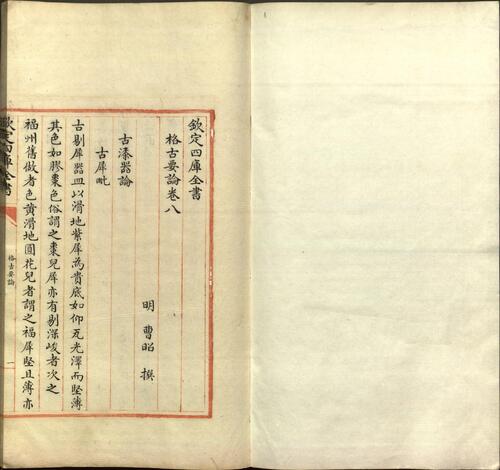 欽定四庫全書
格古要論卷八
明 曹昭 撰
古漆器論
古犀毗
古剔犀器皿以滑地紫犀為貴底如仰瓦光澤而堅薄
其色如膠棗色俗謂之棗兒犀亦有剔深峻者次之
福州舊做者色黃滑地圓花兒者謂之福犀堅且薄亦
欽定四庫全書
格古要論
一